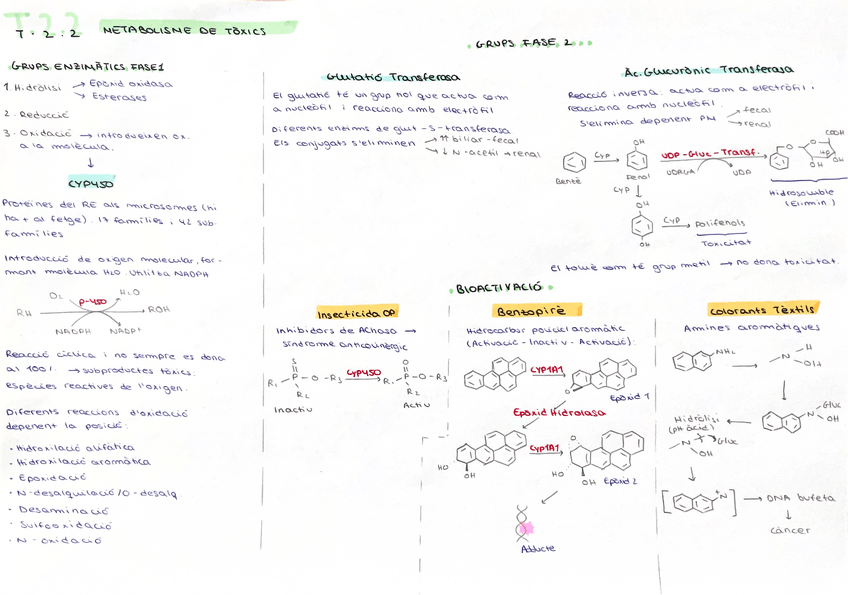 T.2.2
T.2.2 METABOLISME DE TÒXICS
GRUPS ENZIMÀTICS FASE 1
1. Hidròlisi → Epòxid oxidasa
→ Esterases
2. Reducció
3. Oxidació → introdueixen ox.
a la molècula.
CYP450
Proteïnes del RE als microsomes (hi
ha + al fetge). 17 famílies i 42 sub.
famílies
Introducció de oxigen molecular, for-
mant molècula H2O. Utilitza NADPH
O2 P-450 H2O
RH → ROH
NADPH NADP+
Reacció cíclica i no sempre es dona
al 100% → subproductes tòxics.
espècies reactives de l'oxigen.
Diferents reaccions d'oxidació
depenent la posició:
• Hidroxilació alifàtica
• Hidroxilació aromàtica
• Epoxidació
• N-desalquilació/O-desalq
• Desaminació
• Sulfooxidació
• N-oxidació
GRUPS FASE 2
Glutatió Transferasa
El glutatió té un grup tiol que actua com
a nucleòfil i reacciona amb electròfil
Diferents enzims de glut-S-transferasa
Els conjugats s'eliminen → ↑↑ biliar-fecal
→ ↓ N-acetil → renal
Àc. Glucurònic Transferasa
Reacció inversa. actua com a electròfil i
reacciona amb nucleòfil.
S'elimina depenent PM → fecal
→ renal
CYP
OH
UDP-Gluc-Transf.
COOH
Benzè
Fenol
UDPGA
UDP
CYP
Hidrosoluble
(Elimin.)
OH
OH
CYP → polifenols
Toxicitat
El toluè com té grup metil → no dona toxicitat.
BIOACTIVACIÓ
Insecticida OP
Inhibidors de AChasa →
síndrome anticolinèrgic
S
R1-P-O-R3
R2
CYP450
O
R1-P-O-R3
R2
Inactiu
Actiu
Benzopirè
Hidrocarbur policíclic aromàtic
(Activació - Inactiv - Activació):
CYP1A1
O
Epòxid 1
Epòxid Hidrolasa
HO
OH
CYP1A1
O
HO
OH
Epòxid 2
Adducte
colorants Tèxtils
Amines aromàtiques
NH2
N
H
OH
Gluc
N
OH
Hidròlisi
(pH àcid)
N Gluc
OH
N+
→ DNA bufeta
càncer